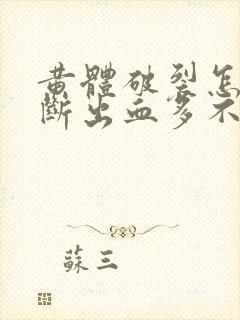 黄體破裂怎
斷出血多不
蘇三